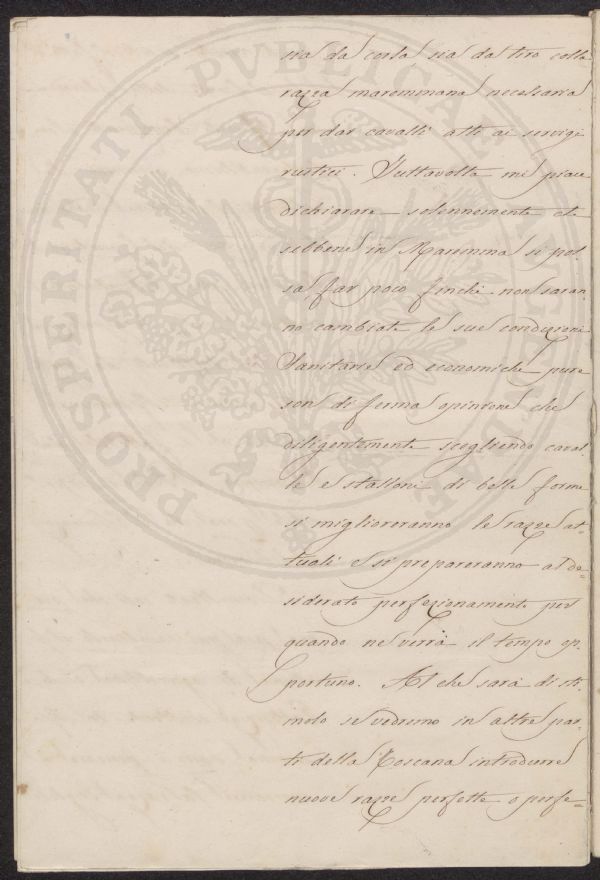 sia da corsa sia da tiro colla
razza maremmana necessaria
per dar cavalli atti ai servigi
rustici. Tuttavolta mi piace
dichiarare solennemente che
sebbene in Maremma si pos-
sa far poco finchè non saran
no cambiate le sue condizioni
Sanitarie ed economiche pure
son di ferma opinione che
diligentemente scegliendo caval
le e stalloni di belle forme
si miglioreranno le razze at-
tuali e si prepareranno al de-
siderato perfezionamento per
quando ne verrà il tempo op-
portuno. Al che sarà di sti-
molo se vedremo in altre par-
ti della Toscana introdurre
nuove razze perfette o perfe=
PROSPERITATI PVBLICAE